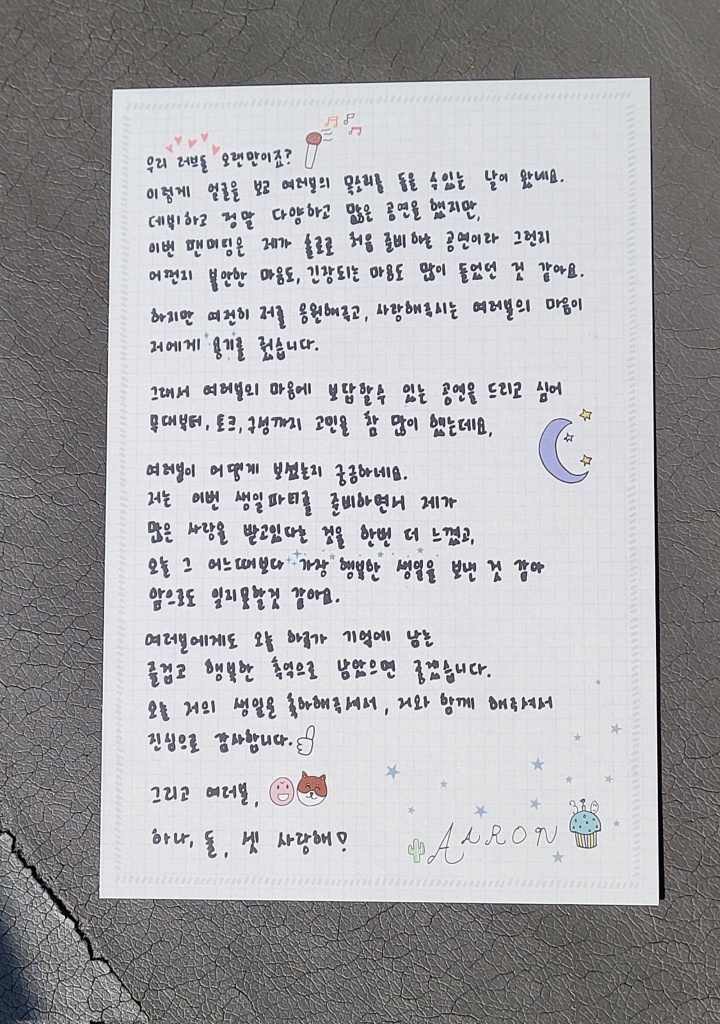 우리 러브들 오랜만이죠?
이렇게 얼굴을 보고 여러분의 목소리를 들을 수있는 날이 왔네요.
데뷔하고 정말 다양하고 많은 공연을 했지만,
이번 팬미팅은 제가 솔로로 처음 준비하는 공연이라 그런지
어쩐지 불안한 마음도, 긴장되는 마음도 많이 들었던 것 같아요.
하지만 여전히 저를 응원해주고, 사랑해주시는 여러분의 마음이
저에게 용기를 줬습니다.
그래서 여러분의 마음에 보답할수 있는 공연을 드리고 싶어
무대부터, 토크, 구성까지 고민을 참 많이 했는데요,
여러분이 어떻게 보셨는지 궁금하네요.
저는 이번 생일파티를 준비하면서 제가
많은 사랑을 받고있다는 것을 한번 더 느꼈고,
오늘 그 어느때보다 가장 행복한 생일을 보낸 것 같아
앞으로도 잊지못할것 같아요.
여러분에게도 오늘 하루가 기억에 남는
즐겁고 행복한 추억으로 남았으면 좋겠습니다.
오늘 저의 생일을 축하해주셔서, 저와 함께 해주셔서
진심으로 감사합니다.
그리고 여러분,
하나, 둘, 셋 사랑해♡
AARON